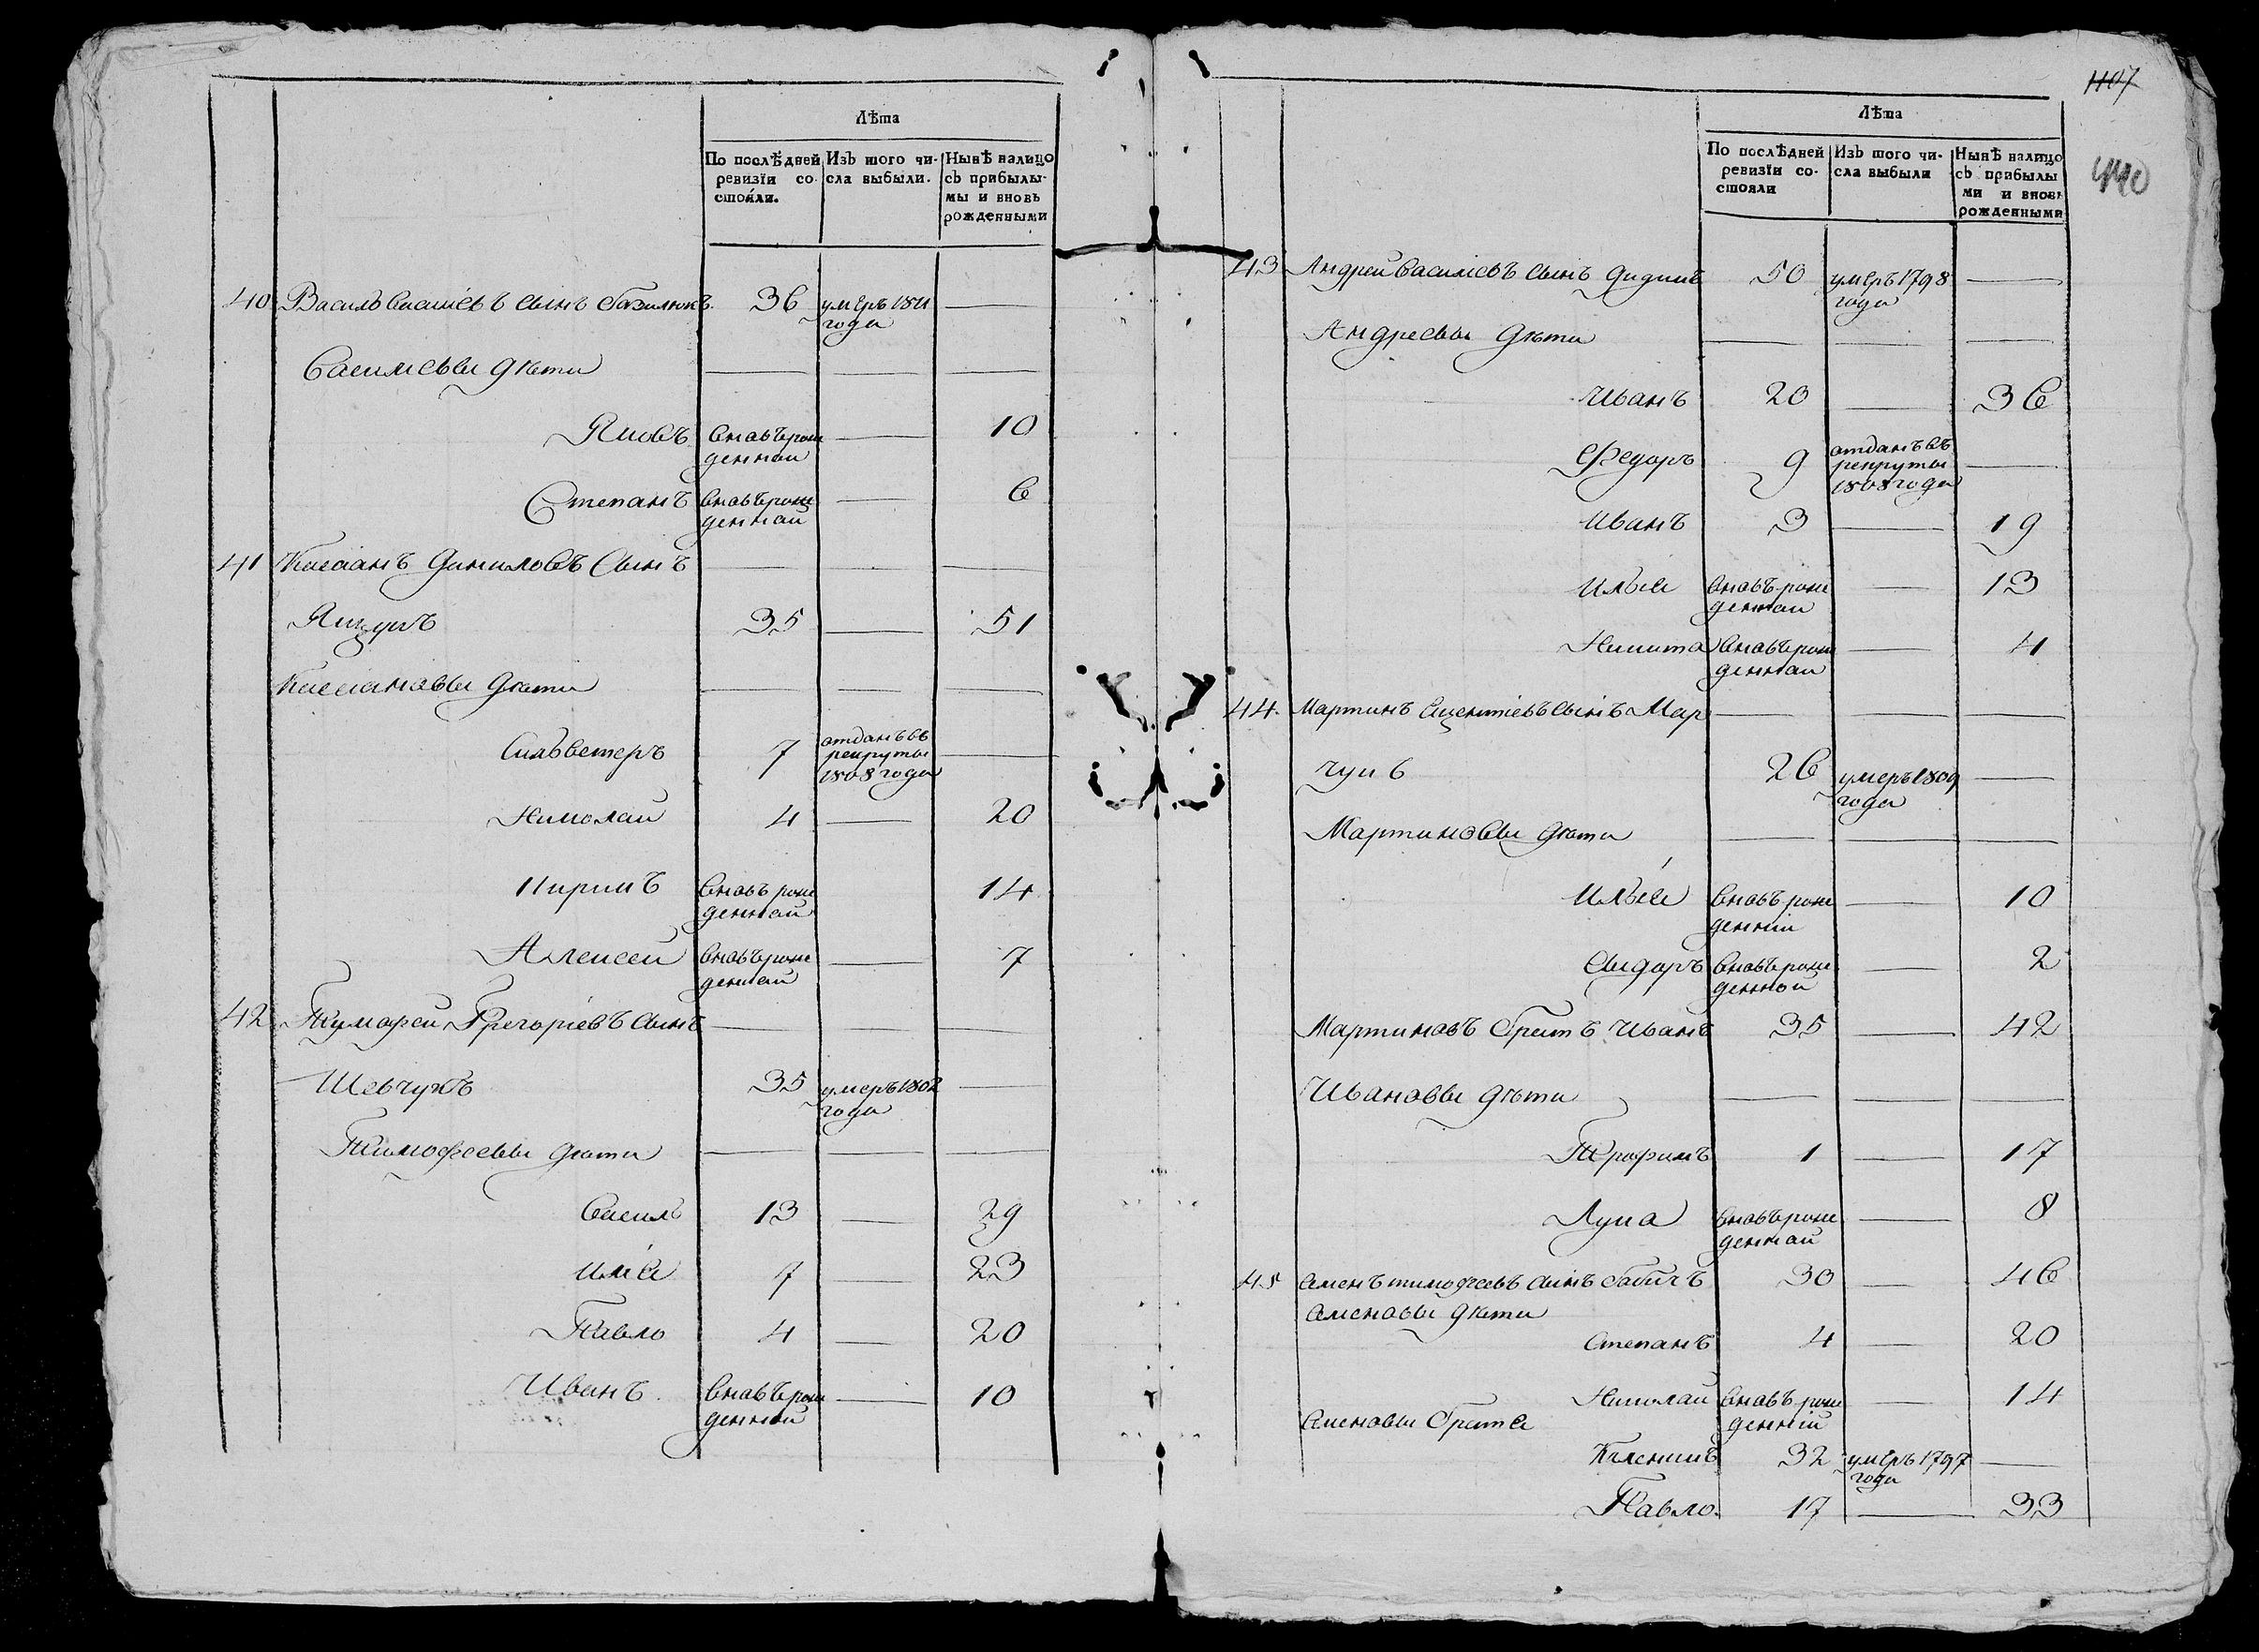 Лѣта
По послѣдней ревизїи со- стояли.
Изъ того чи- сла выбыли.
Нынѣ налицо съ прибылы- мы и вновь рожденными
40 Василь Василіевъ сынъ 36 умеръ 1811 года —
Василевы дѣти — — —
Яковъ вновъ рож денной — 10
Степанъ вновъ рож денной — 6
41 Касіанъ Даниловъ Сынъ — — —
Яцукъ 35 — 51
Касіановы дѣти — — —
Сильвестеръ 7 отданъ въ рекруты 1808 года —
Николай 4 — 20
Киримъ вновъ рож денной 14
Алексей вновъ рож денной — 7
42 Тимофей Грегоріевъ Сынъ — — —
Шевчукъ 35 умеръ 1802 года —
Тимофеевы дѣти — — —
Василь 13 — 29
Илія 7 — 23
Павло 4 — 20
Иванъ вновъ рож денной — 10
1107
440
Лѣта
По послѣдней ревизїи со- стояли
Изъ того чи- сла выбыли
Нынѣ налицо съ прибылы ми и вновь рожденными
43 Андрей Василіевъ сынъ Дидикъ 50 умеръ 1798 года —
Андреевы дѣти — — —
Иванъ 20 — 36
Федоръ 9 отданъ въ рекруты 1808 года —
Иванъ 3 — 19
Илья вновъ рож денной — 13
Никита вновъ рож денной — 4
44. Мартинъ сынъ Мар — — —
чукъ 26 умеръ 1809 года —
Мартиновы дѣти — — —
Илья вновъ рож денній — 10
Сидоръ вновъ рож денной — 2
Мартиновъ братъ Иванъ 35 — 42
Ивановы дѣти — — —
Трофимъ 1 — 17
Лука вновъ рож денной — 8
45 Семенъ тимофеевъ сынъ Бабичъ 30 — 46
Семеновы дѣти
Степанъ 4 — 20
Николай вновъ рож денній — 14
Семеновы братья
32 умеръ 1797 года —
Павло. 17 — 33